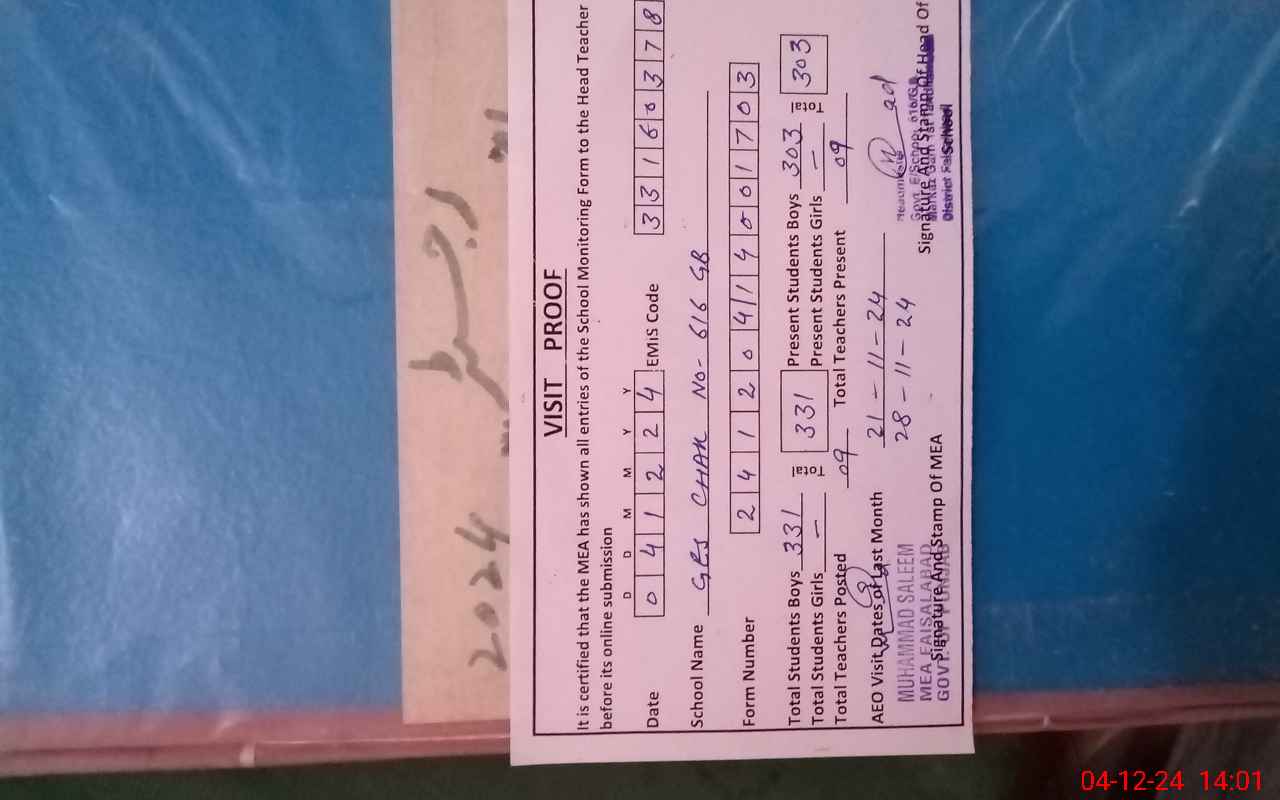 VISIT PROOF
It is certified that the MEA has shown all entries of the School Monitoring Form to the Head Teacher
before its online submission
D D M M Y Y
Date 0 4 1 2 2 4 EMIS Code 3 3 1 6 0 3 7 8
School Name GPS CHAK No- 616 GB
Form Number 2 4 1 2 0 4 1 4 0 0 1 7 0 3
Total Students Boys 331 Total 331 Present Students Boys 303 Total 303
Total Students Girls — Present Students Girls —
Total Teachers Posted 09 Total Teachers Present 09
AEO Visit Dates of Last Month 21 - 11 - 24
28 - 11 - 24
MUHAMMAD SALEEM
MEA FAISALABAD
GOVT. OF PUNJAB
Signature And Stamp Of MEA
Signature And Stamp Of Head Of
School
2024
04-12-24 14:01